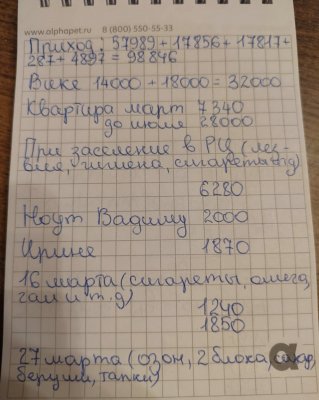 www.alphapet.ru 8 (800) 550-55-33
Приход: 57989+17856+17817+
287+4897=98846
Вике 14000+18000=32000
Квартира март 7340
до июля 28000
При заселение в РЦ (лез-
вия, гигиена, сигареты итд)
6280
Ноут Вадиму 2000
Ирине 1870
16 марта (сигареты, омега,
гам и т.д)
1240
1850
27 марта (озон, 2 блока, сахар,
беруши, тапки)
a